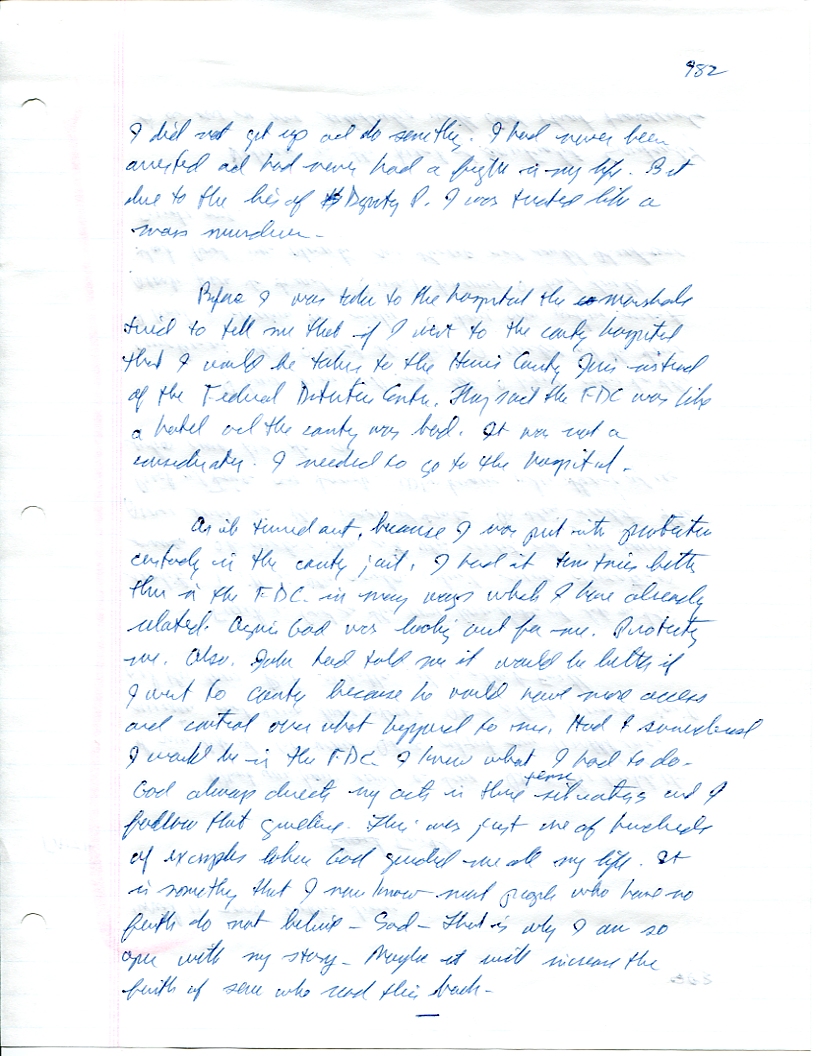 982
I did not get up and do something. I had never been
arrested and had never had a fight in my life. But
due to the lies of Deputy P. I was treated like a
mass murderer -
Before I was taken to the hospital the marshals
tried to tell me that if I went to the county hospital
that I would be taken to the Harris County Jail instead
of the Federal Detention Center. They said the FDC was like
a hotel and the county was bad. It was not a
consideration. I needed to go to the hospital.
As it turned out, because I was put into protective
custody in the county jail, I had it ten times better
than in the FDC in many ways which I have already
related. Again God was looking out for me. Protecting
me. Also, John had told me it would be better if
I went to county because he would have more access
and control over what happened to me. Had I surrendered
I would be in the FDC. I knew what I had to do -
God always directs my acts in these tense situations and I
follow that guideline. This was just one of hundreds
of examples when God guided me all my life. It
is something that I now know most people who have no
faith do not believe - Sad - That is why I am so
open with my story - Maybe it will increase the
faith of some who read this book -